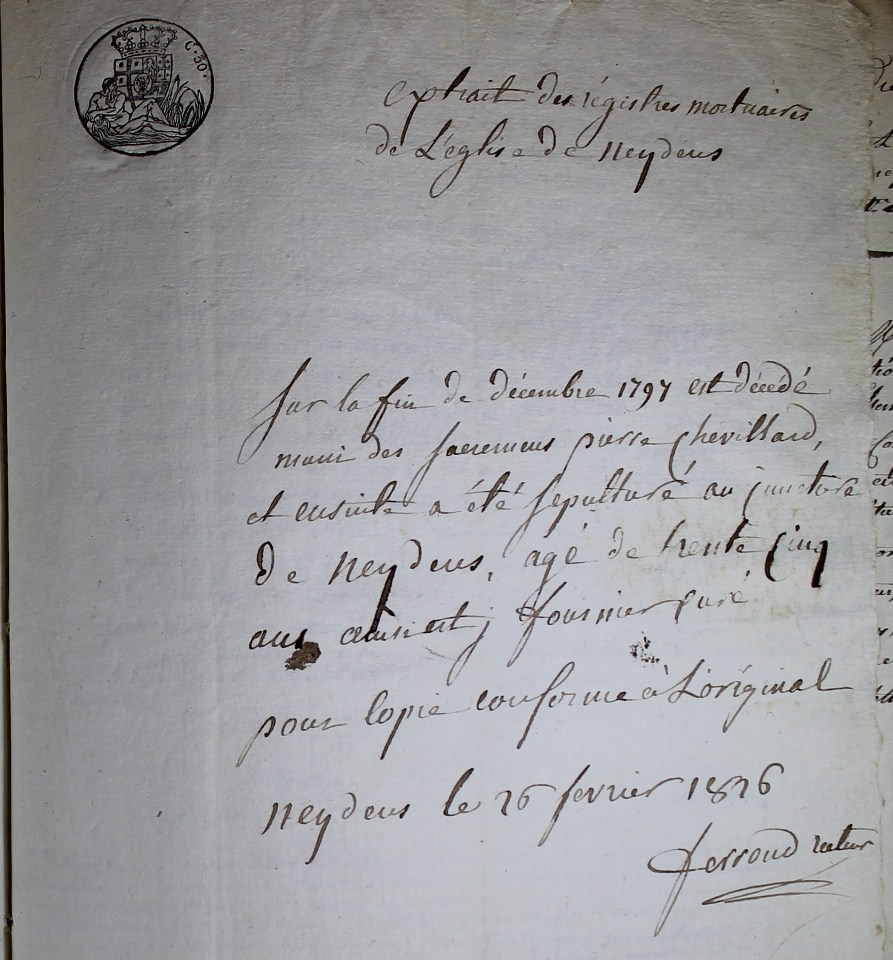 C. 30.
extrait des régistres mortuaires
de L'église de Neydens
Sur la fin de décembre 1797 est décédé
muni des sacremens pierre Chevillard,
et ensuite a été sepulturé au
de Neydens, agé de trente cinq
ans j fournier curé
pour copie conforme à L'original
Neydens le 26 fevrier 1826